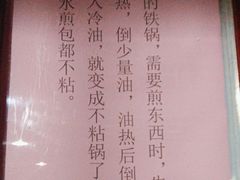 的铁锅，需要煎东西时，
热，倒少量油，油热后倒
入冷油，就变成不粘锅了
水煎包都不粘。